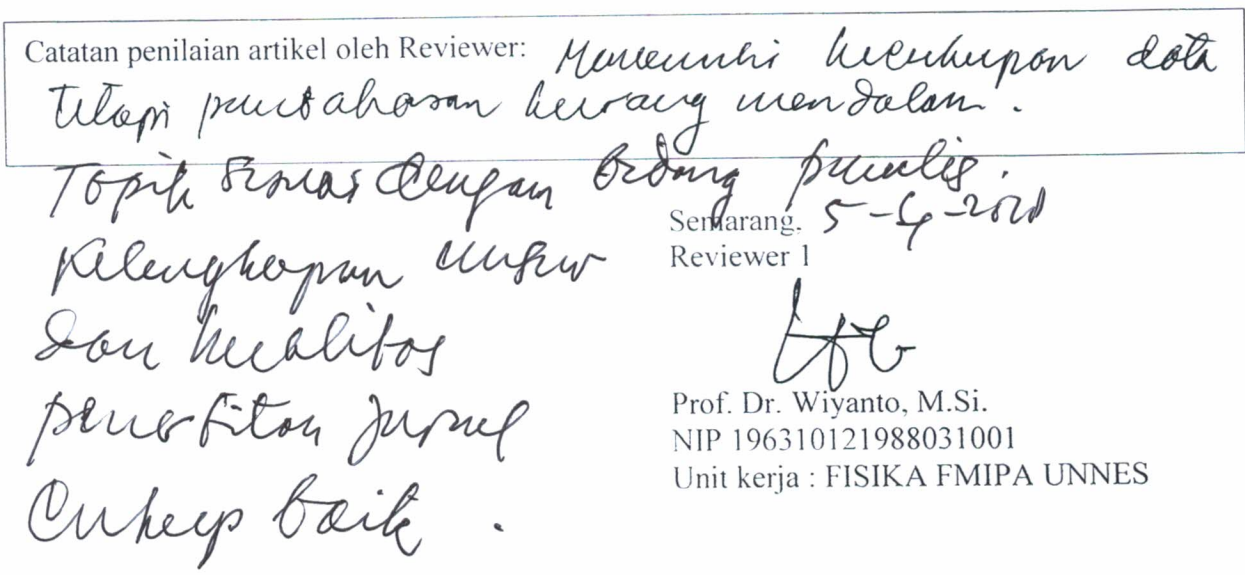 Catatan penilaian artikel oleh Reviewer: Memenuhi kecukupan data
tetapi pembahasan kurang mendalam.
Topik sesuai dengan bidang penulis.
Semarang,
Reviewer 1
Kelengkapan unsur
dan kualitas
penerbitan jurnal
Cukup baik.
Prof. Dr. Wiyanto, M.Si.
NIP 196310121988031001
Unit kerja : FISIKA FMIPA UNNES